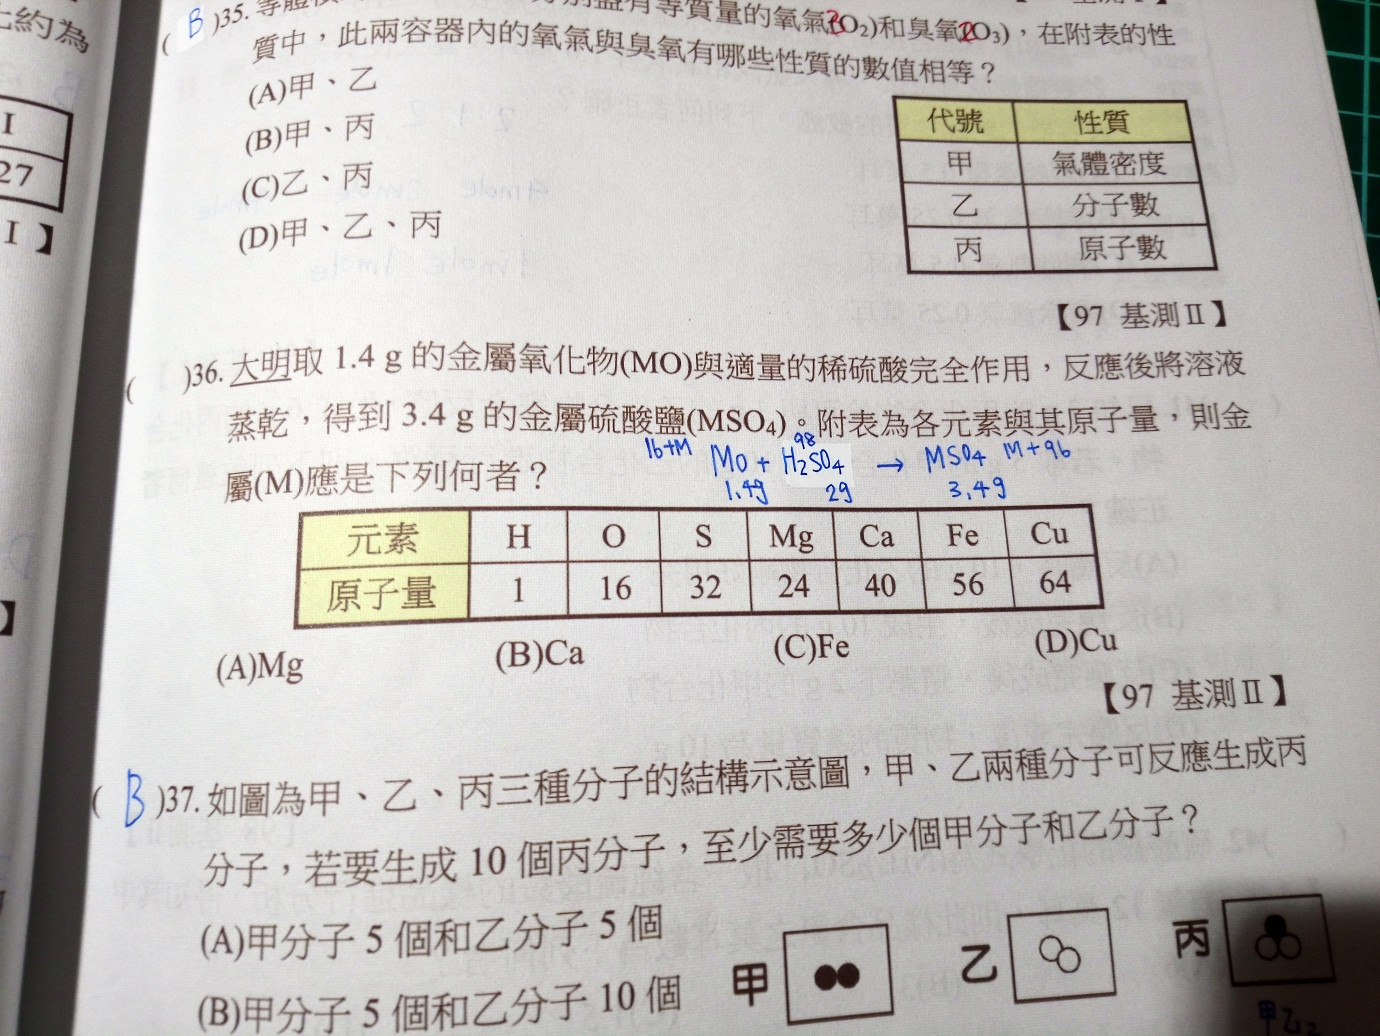 比約為
I
27
I】
】
( B )35.
有等質量的氧氣(O₂)和臭氧(O₃)，在附表的性
質中，此兩容器內的氧氣與臭氧有哪些性質的數值相等？
(A)甲、乙
(B)甲、丙
(C)乙、丙
(D)甲、乙、丙
代號 性質
甲 氣體密度
乙 分子數
丙 原子數
【97 基測Ⅱ】
( )36.大明取 1.4 g 的金屬氧化物(MO)與適量的稀硫酸完全作用，反應後將溶液
蒸乾，得到 3.4 g 的金屬硫酸鹽(MSO₄)。附表為各元素與其原子量，則金
屬(M)應是下列何者？
16+M 98 M+96
MO + H₂SO₄ → MSO₄
1.4g 2g 3.4g
元素 H O S Mg Ca Fe Cu
原子量 1 16 32 24 40 56 64
(A)Mg (B)Ca (C)Fe (D)Cu
【97 基測Ⅱ】
( B )37.如圖為甲、乙、丙三種分子的結構示意圖，甲、乙兩種分子可反應生成丙
分子，若要生成 10 個丙分子，至少需要多少個甲分子和乙分子？
(A)甲分子 5 個和乙分子 5 個
(B)甲分子 5 個和乙分子 10 個
甲 乙 丙